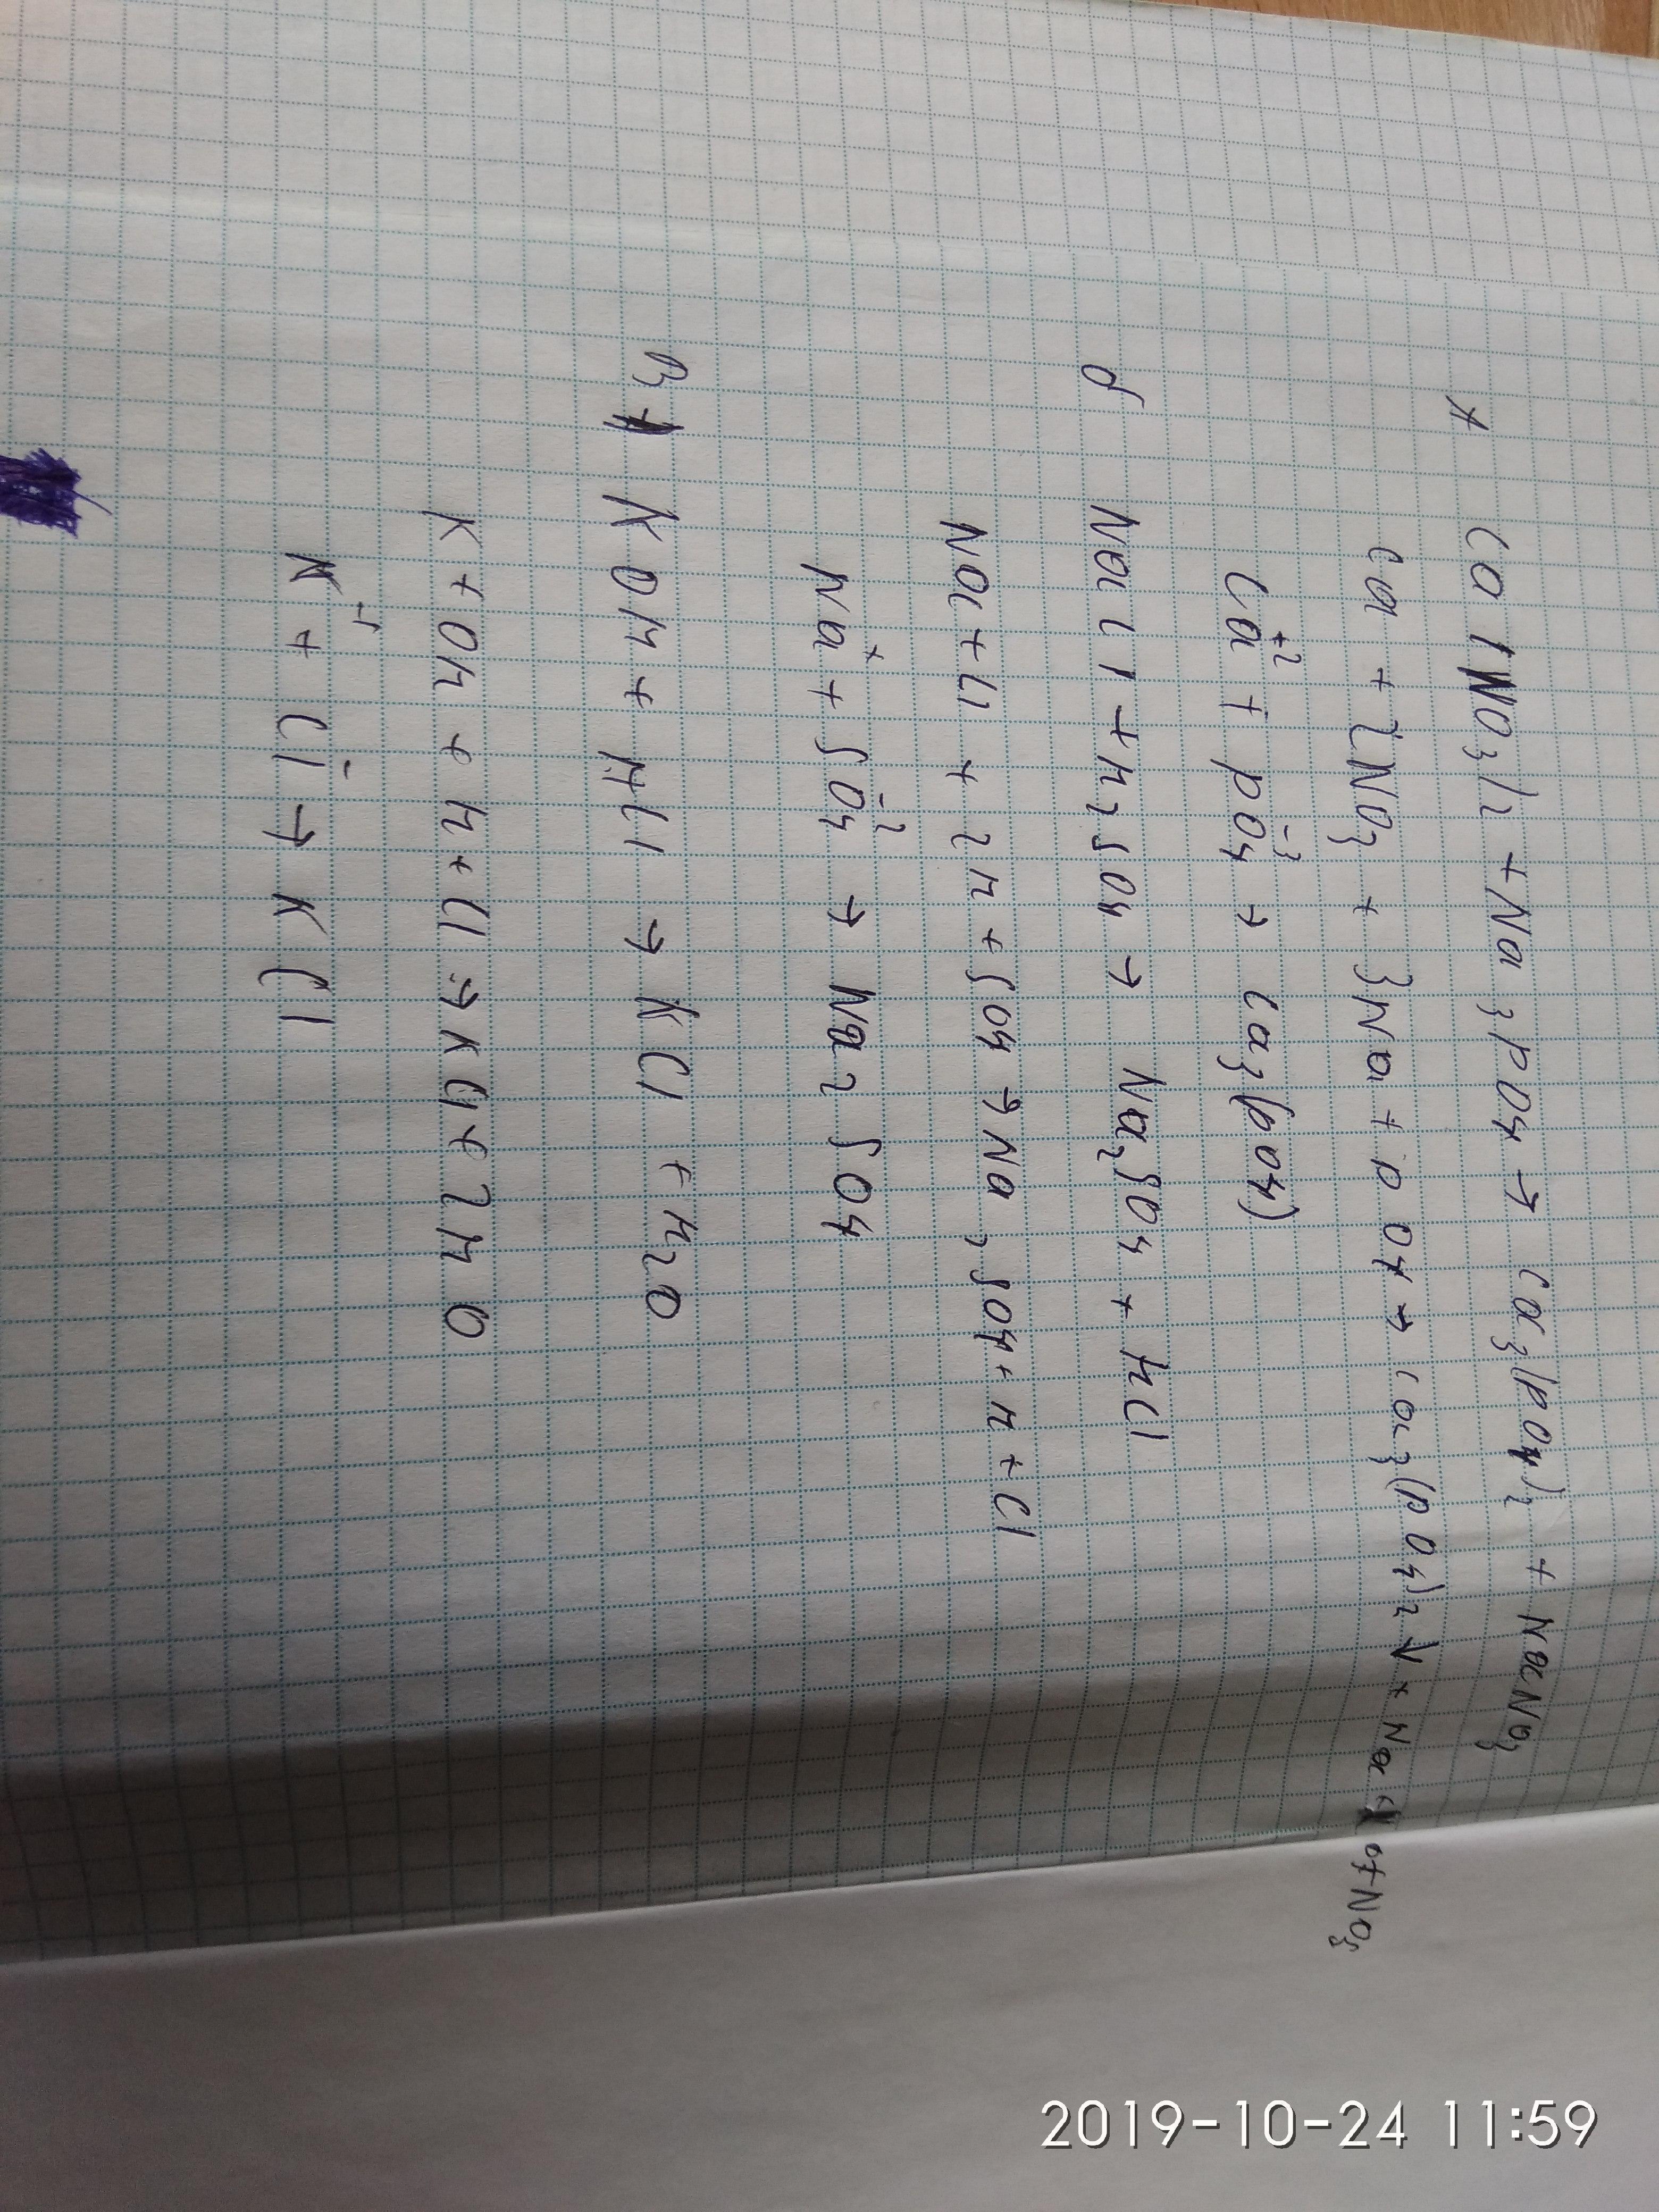 А Ca(NO3)2 + Na3PO4 → Ca3(PO4)2 + NaNO3
Ca + 2NO3 + 3Na + PO4 → Ca3(PO4)2↓ + Na + NO3
Ca+2 + PO4-3 → Ca3(PO4)
б NaCl + H2SO4 → Na2SO4 + HCl
Na + Cl + 2H + SO4 → Na2SO4 + H + Cl
Na+ + SO4-2 → Na2SO4
В KOH + HCl → KCl + H2O
K + OH + H + Cl → KCl + 2HO
K+ + Cl- → KCl
2019-10-24 11:59